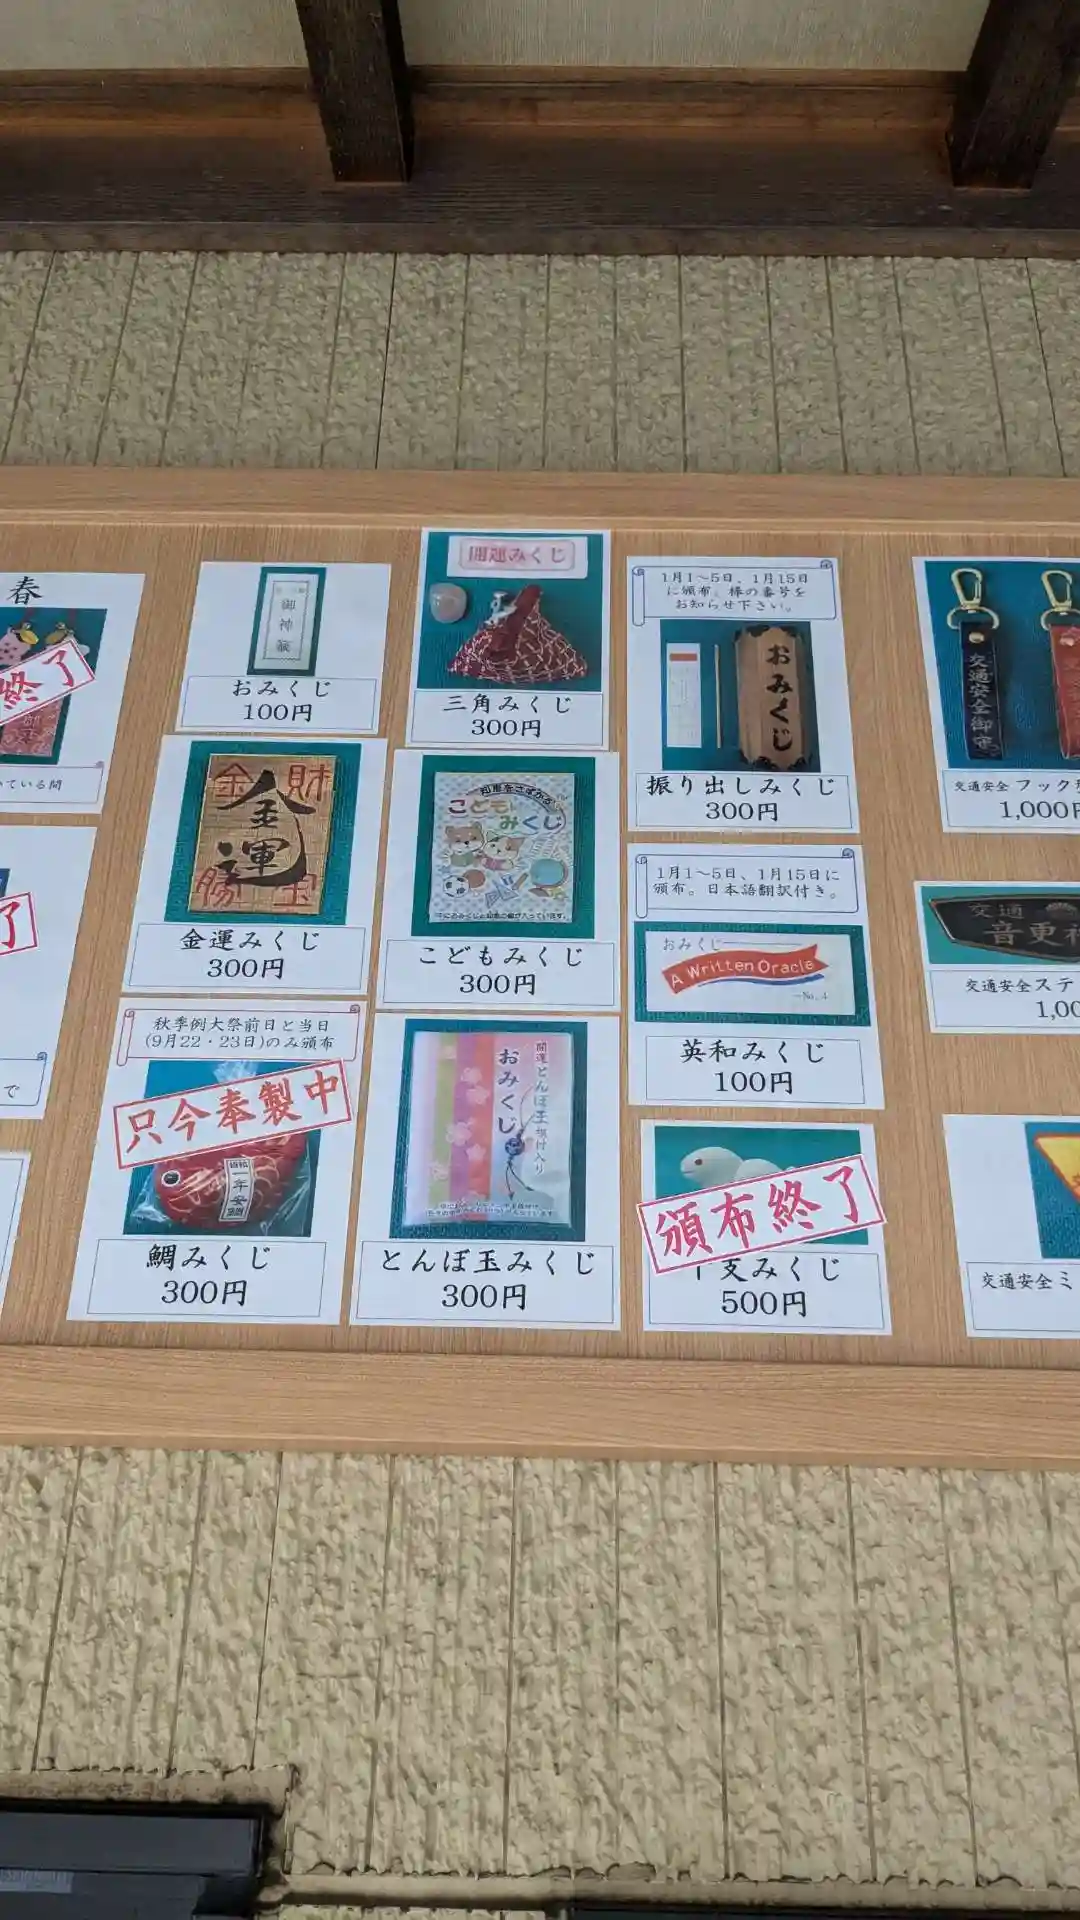 春
終了
いている間
了
で
御神籤
おみくじ
100円
金
財
金運
勝
宝
金運みくじ
300円
秋季例大祭前日と当日
(9月22・23日)のみ頒布
只今奉製中
一年安鯛
鯛みくじ
300円
開運みくじ
三角みくじ
300円
知恵をさずかる
こども
みくじ
こどもみくじ
300円
開運とんぼ玉根付入り
おみくじ
とんぼ玉みくじ
300円
1月1~5日、1月15日
に頒布。棒の番号を
お知らせ下さい。
おみくじ
振り出しみくじ
300円
1月1~5日、1月15日に
頒布。日本語翻訳付き。
おみくじ
A Written Oracle
No. 4
英和みくじ
100円
頒布終了
支みくじ
500円
交通安全御守
交通安全フック
1,000円
交通
音更
交通安全ステ
1,00
交通安全ミ